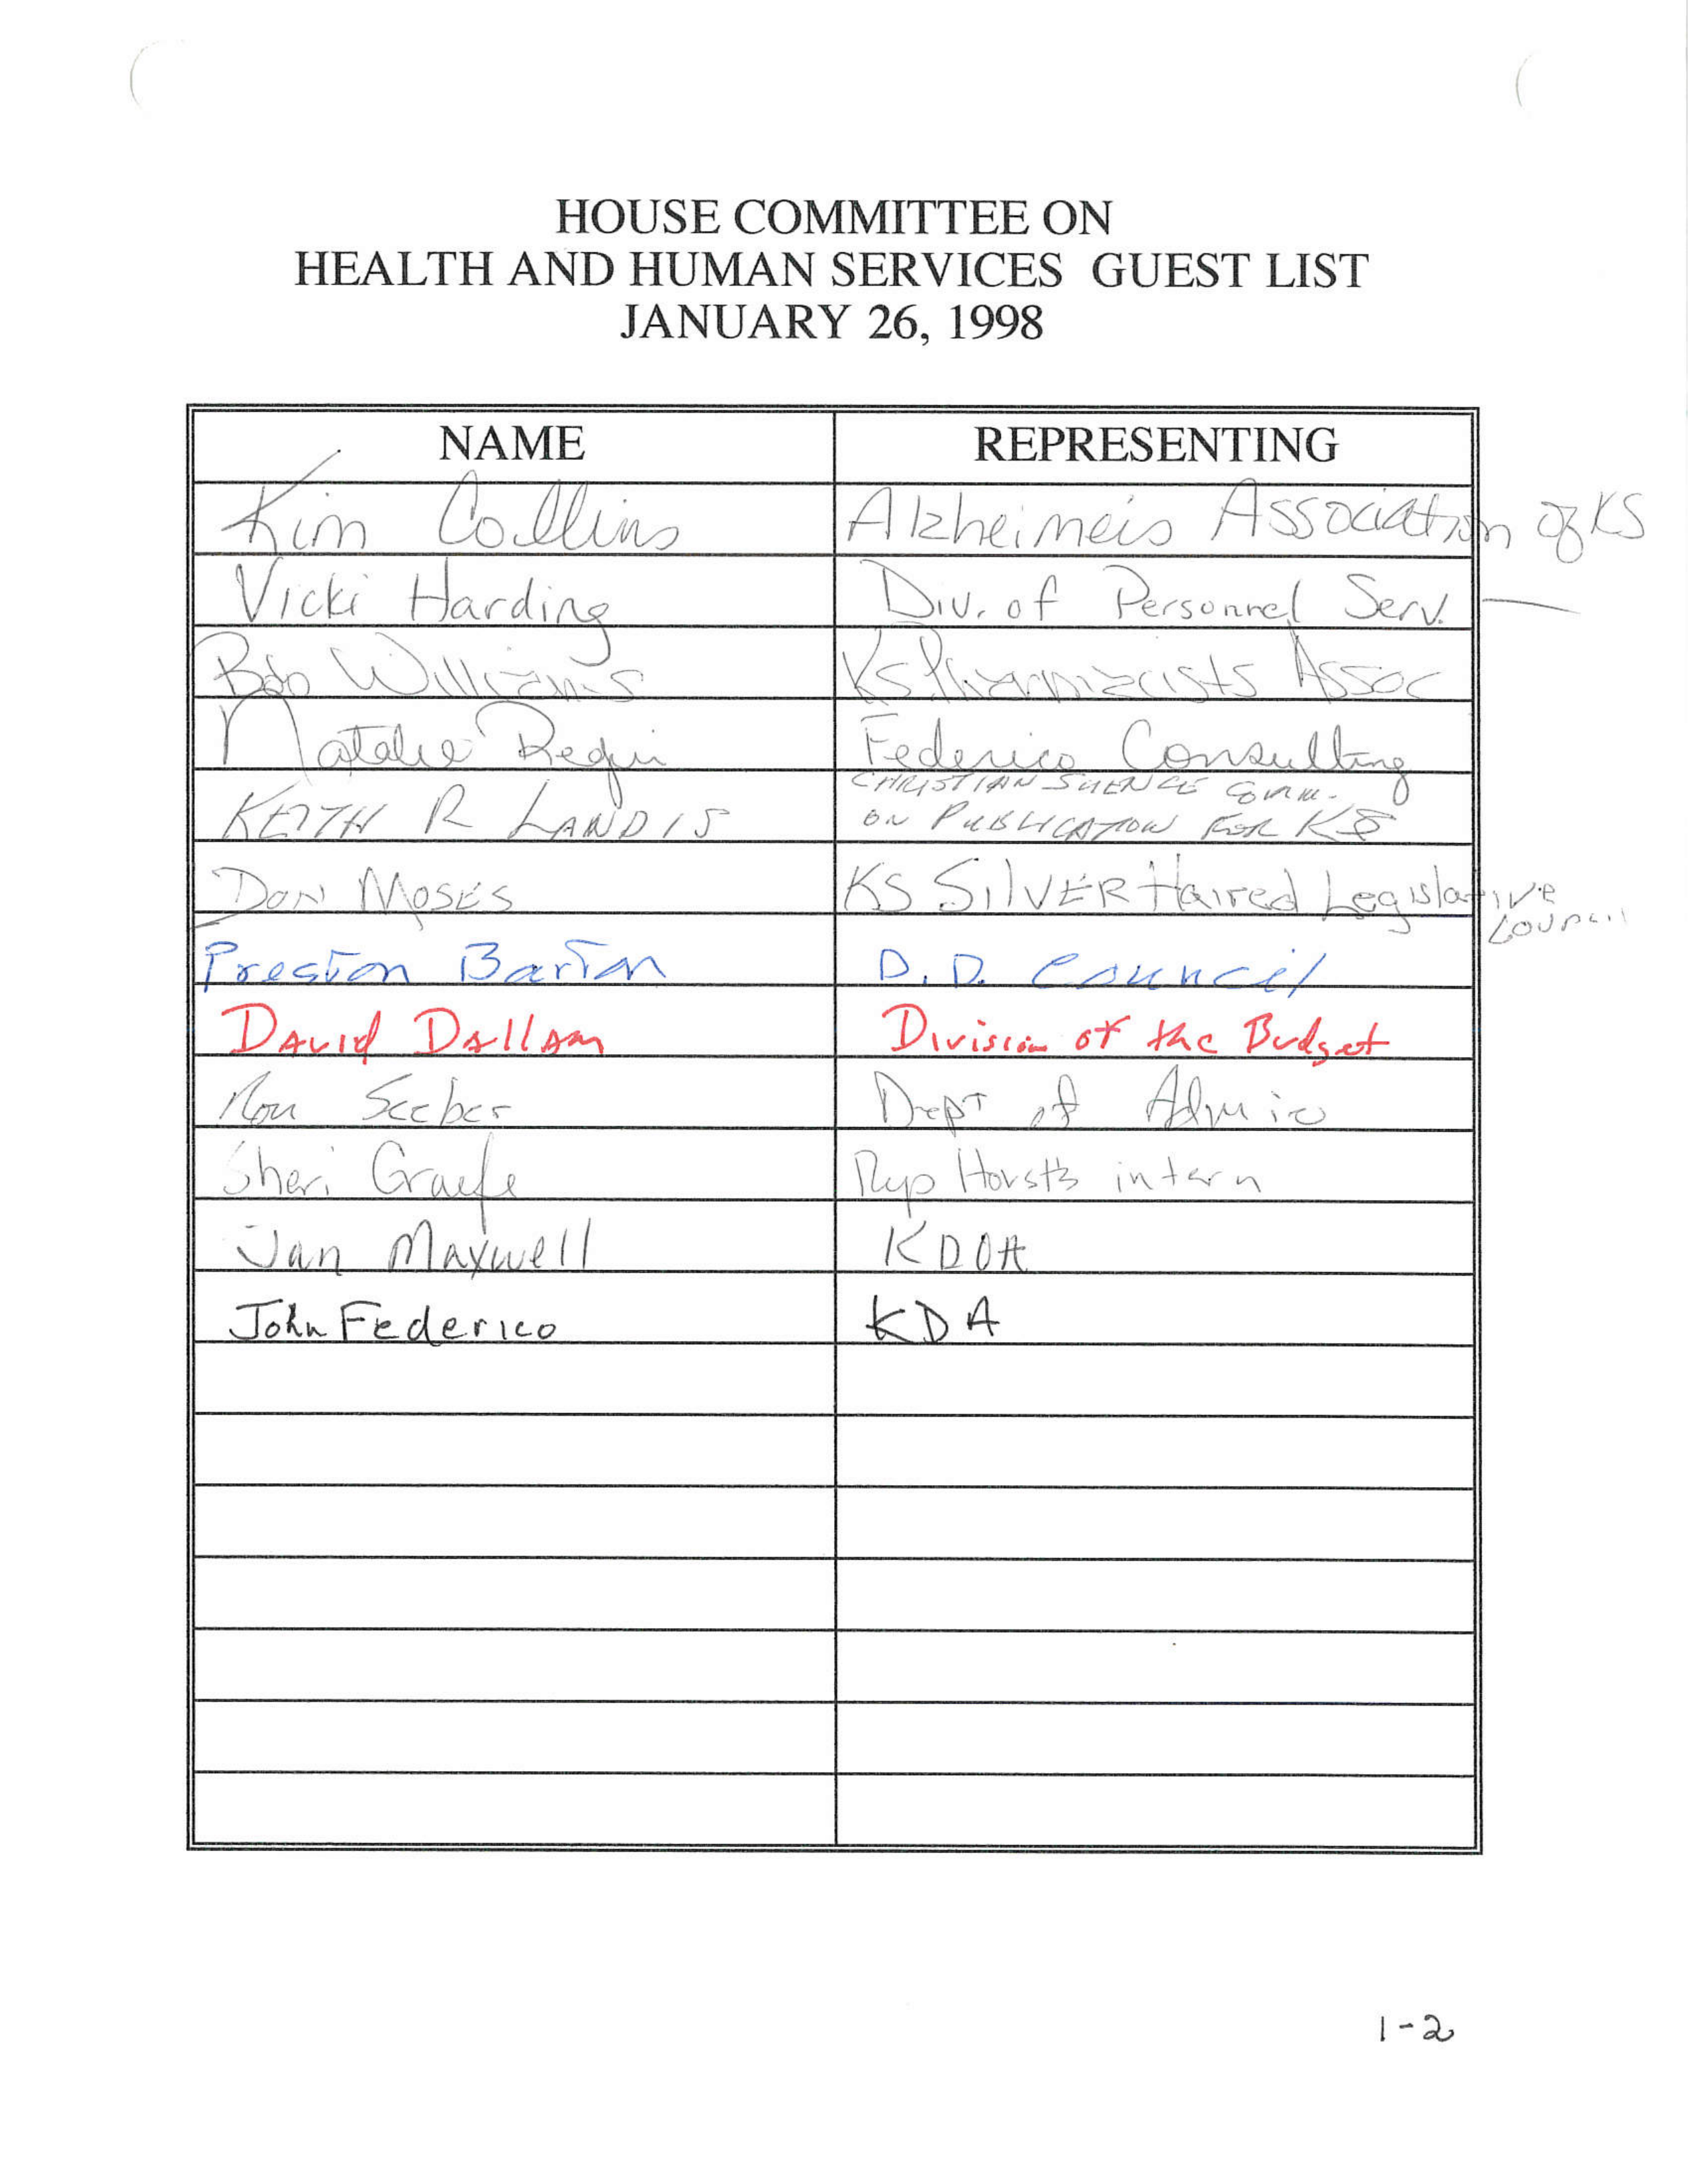 HOUSE COMMITTEE ON
HEALTH AND HUMAN SERVICES GUEST LIST
JANUARY 26, 1998
NAME REPRESENTING
Kim Collins Alzheimer's Association of KS
Vicki Harding Div. of Personnel Serv.
Bob Williams Ks Pharmacists Assoc
Natalie Federico Consulting
KEITH R LANDIS CHRISTIAN SCIENCE COMM.
ON PUBLICATION FOR KS
DON MOSES KS SILVER Haired Legislative
Council
Preston Barton D.D. Council
DAVID DALLAM Division of the Budget
Ron Seeber Dept of Admin
Sheri Graefe Rep Horst's intern
Jan Maxwell KDOA
John Federico KDA
1-2